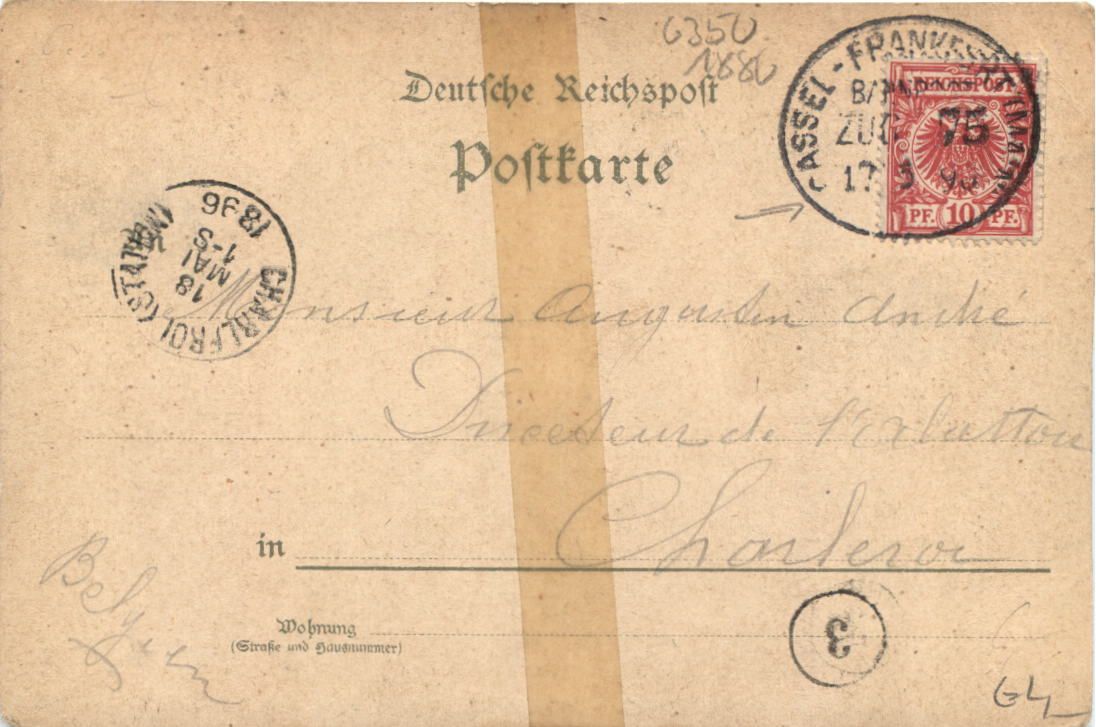 6350
1886
Deutsche Reichspost
Postkarte
CASSEL - FRANKFURT (MAIN)
BAHNPOST
ZUG 75
17 5 96
REICHSPOST
PF. 10 PF.
CHARLEROI (STATION)
18
MAI
1-S
1896
Monsieur Augustin André
Directeur de
Charleroi
in
Belgien
Wohnung
(Straße und Hausnummer)
3